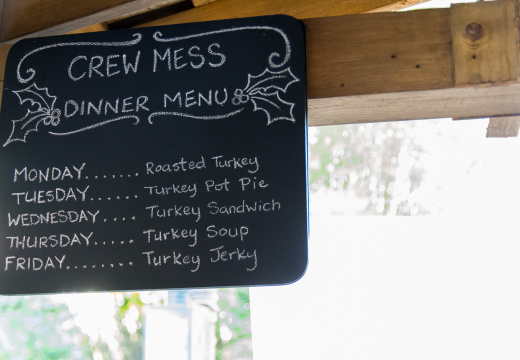 CREW MESS
DINNER MENU
MONDAY....... Roasted Turkey
TUESDAY...... Turkey Pot Pie
WEDNESDAY.... Turkey Sandwich
THURSDAY..... Turkey Soup
FRIDAY........ Turkey Jerky